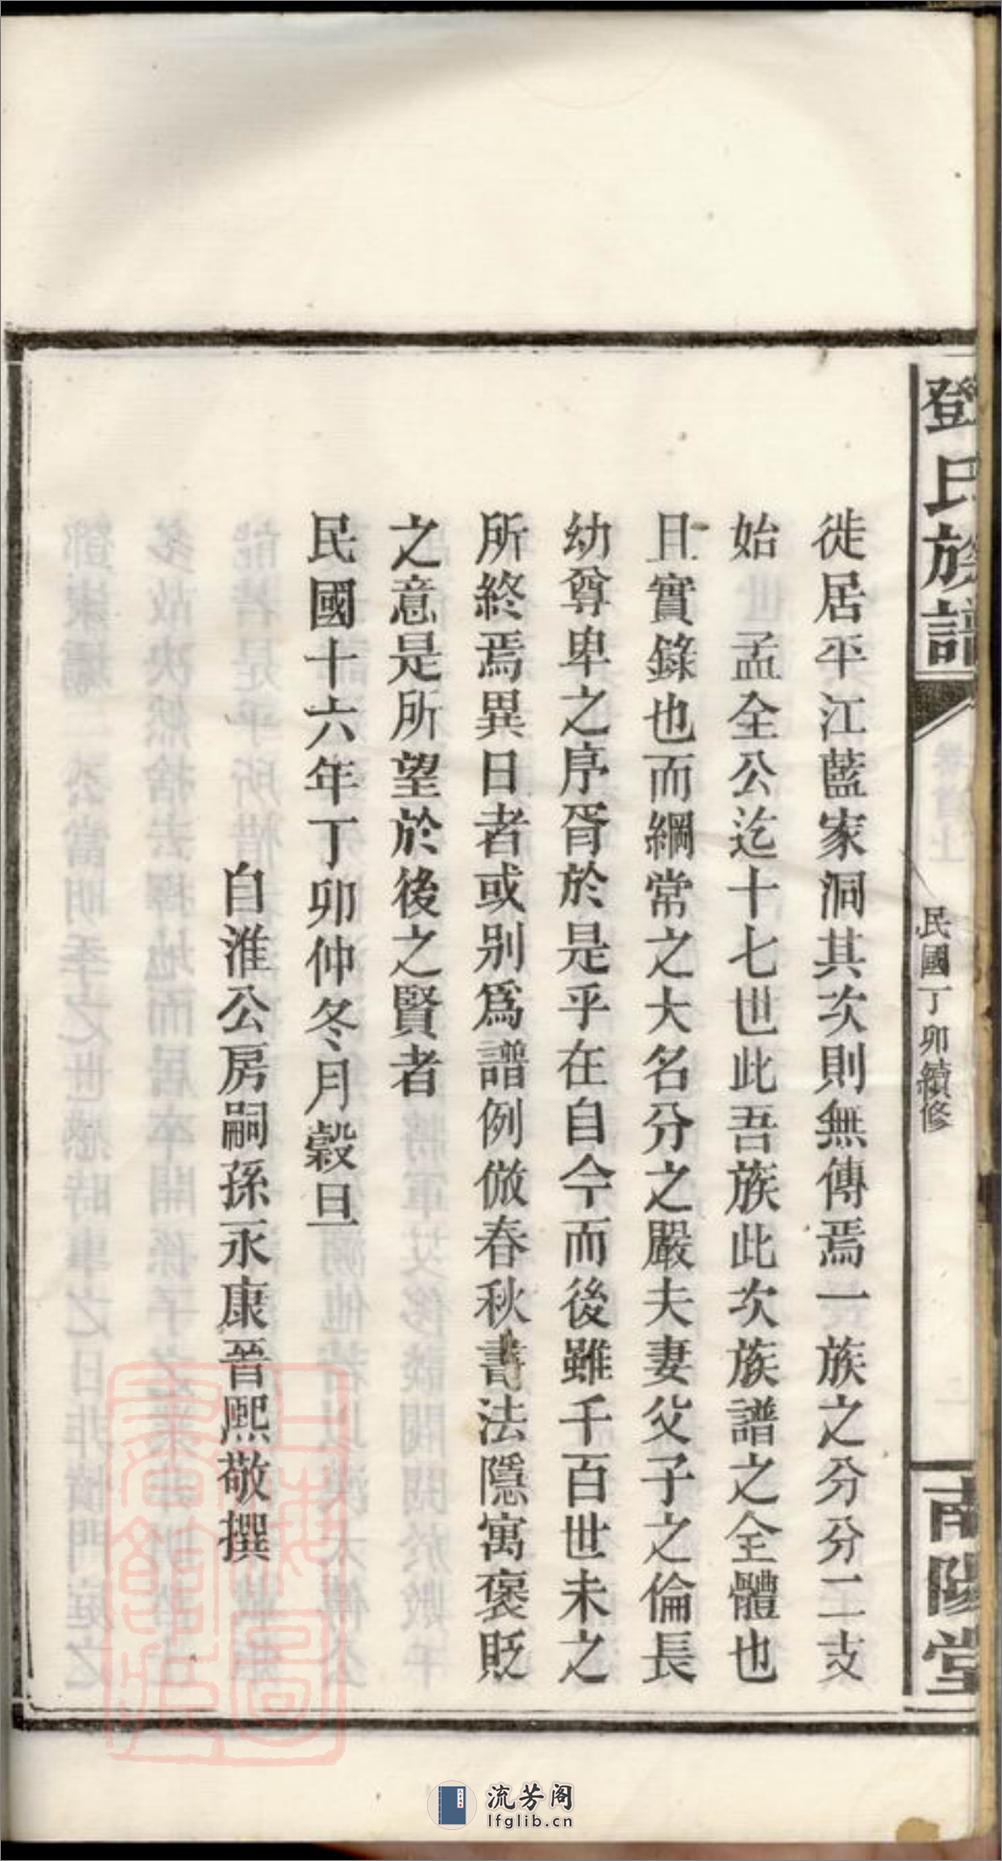 鄧氏族譜
民國丁卯續修
南陽堂
徙居平江藍家洞其次則無傳焉一族之分分二支
始　孟全公迄十七世此吾族此次族譜之全體也
且實錄也而綱常之大名分之嚴夫妻父子之倫長
幼尊卑之序胥於是乎在自今而後雖千百世未之
所終焉異日者或别為譜例倣春秋書法隱寓褒貶
之意是所望於後之賢者
民國十六年丁卯仲冬月穀旦
自淮公房嗣孫永康晉熙敬撰
流芳阁
lfglib.cn